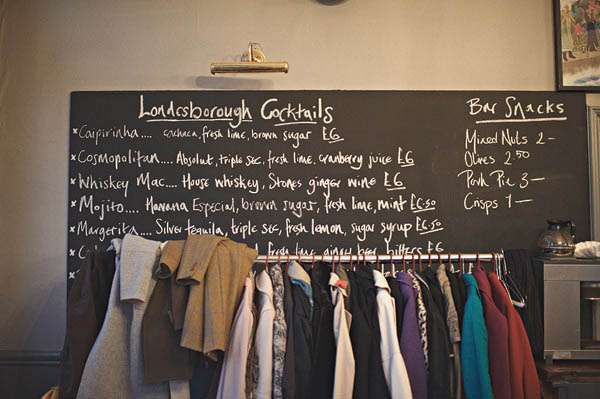 Londesborough Cocktails
* Caipirinha.... cachaca, fresh lime, brown sugar £6
* Cosmopolitan.... Absolut, triple sec, fresh lime, cranberry juice £6
* Whiskey Mac.... House whiskey, Stones ginger wine £6
* Mojito.... Havana Especial, brown sugar, fresh lime, mint £6.50
* Margerita.... Silver tequila, triple sec, fresh lemon, sugar syrup £6.50
fresh lime, ginger beer, bitters £6
Bar Snacks
Mixed Nuts 2-
Olives 2.50
Pork Pie 3-
Crisps 1-